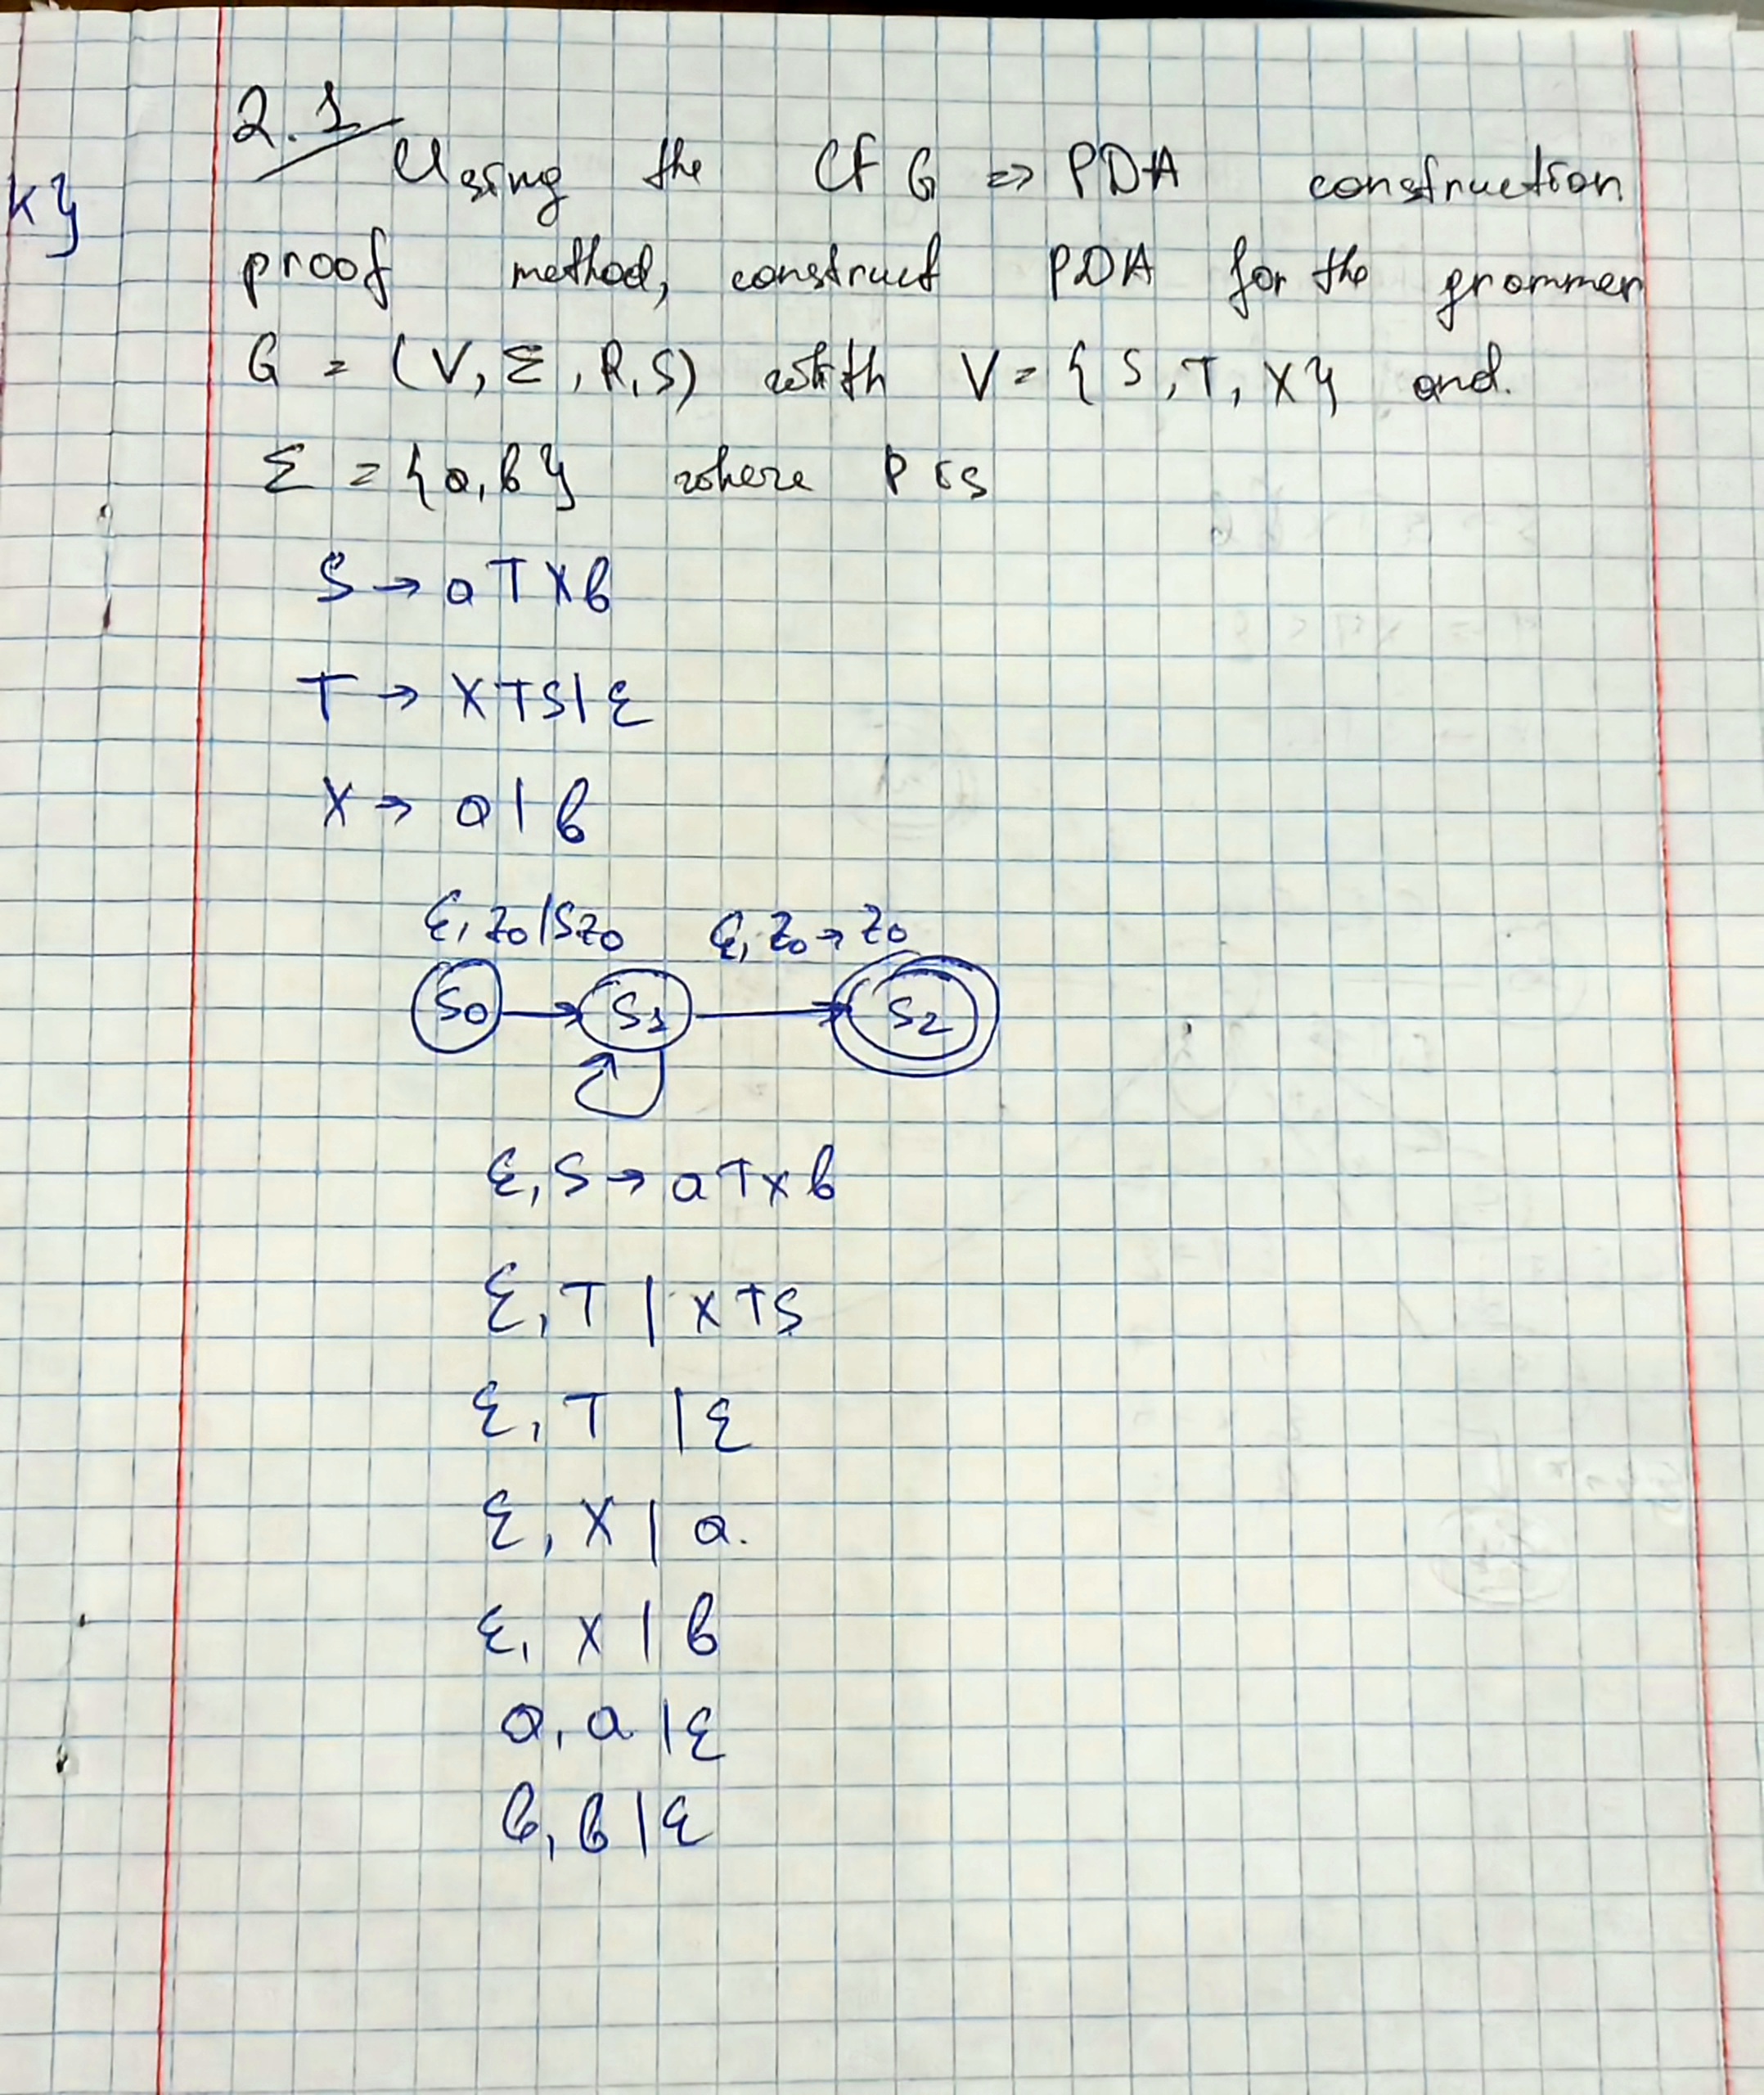 k}
2.1
Using the CFG => PDA construction
proof method, construct PDA for the grammer
G = (V, Σ, R, S) with V = { S, T, X } and.
Σ = {a, b} where P is
S → aTXb
T → XTS | ε
X → a | b
ε, z₀ | Sz₀ ε, z₀ → z₀
S₀ S₁ S₂
ε, S → aTxb
ε, T | XTS
ε, T | ε
ε, X | a.
ε, X | b
a, a | ε
b, b | ε